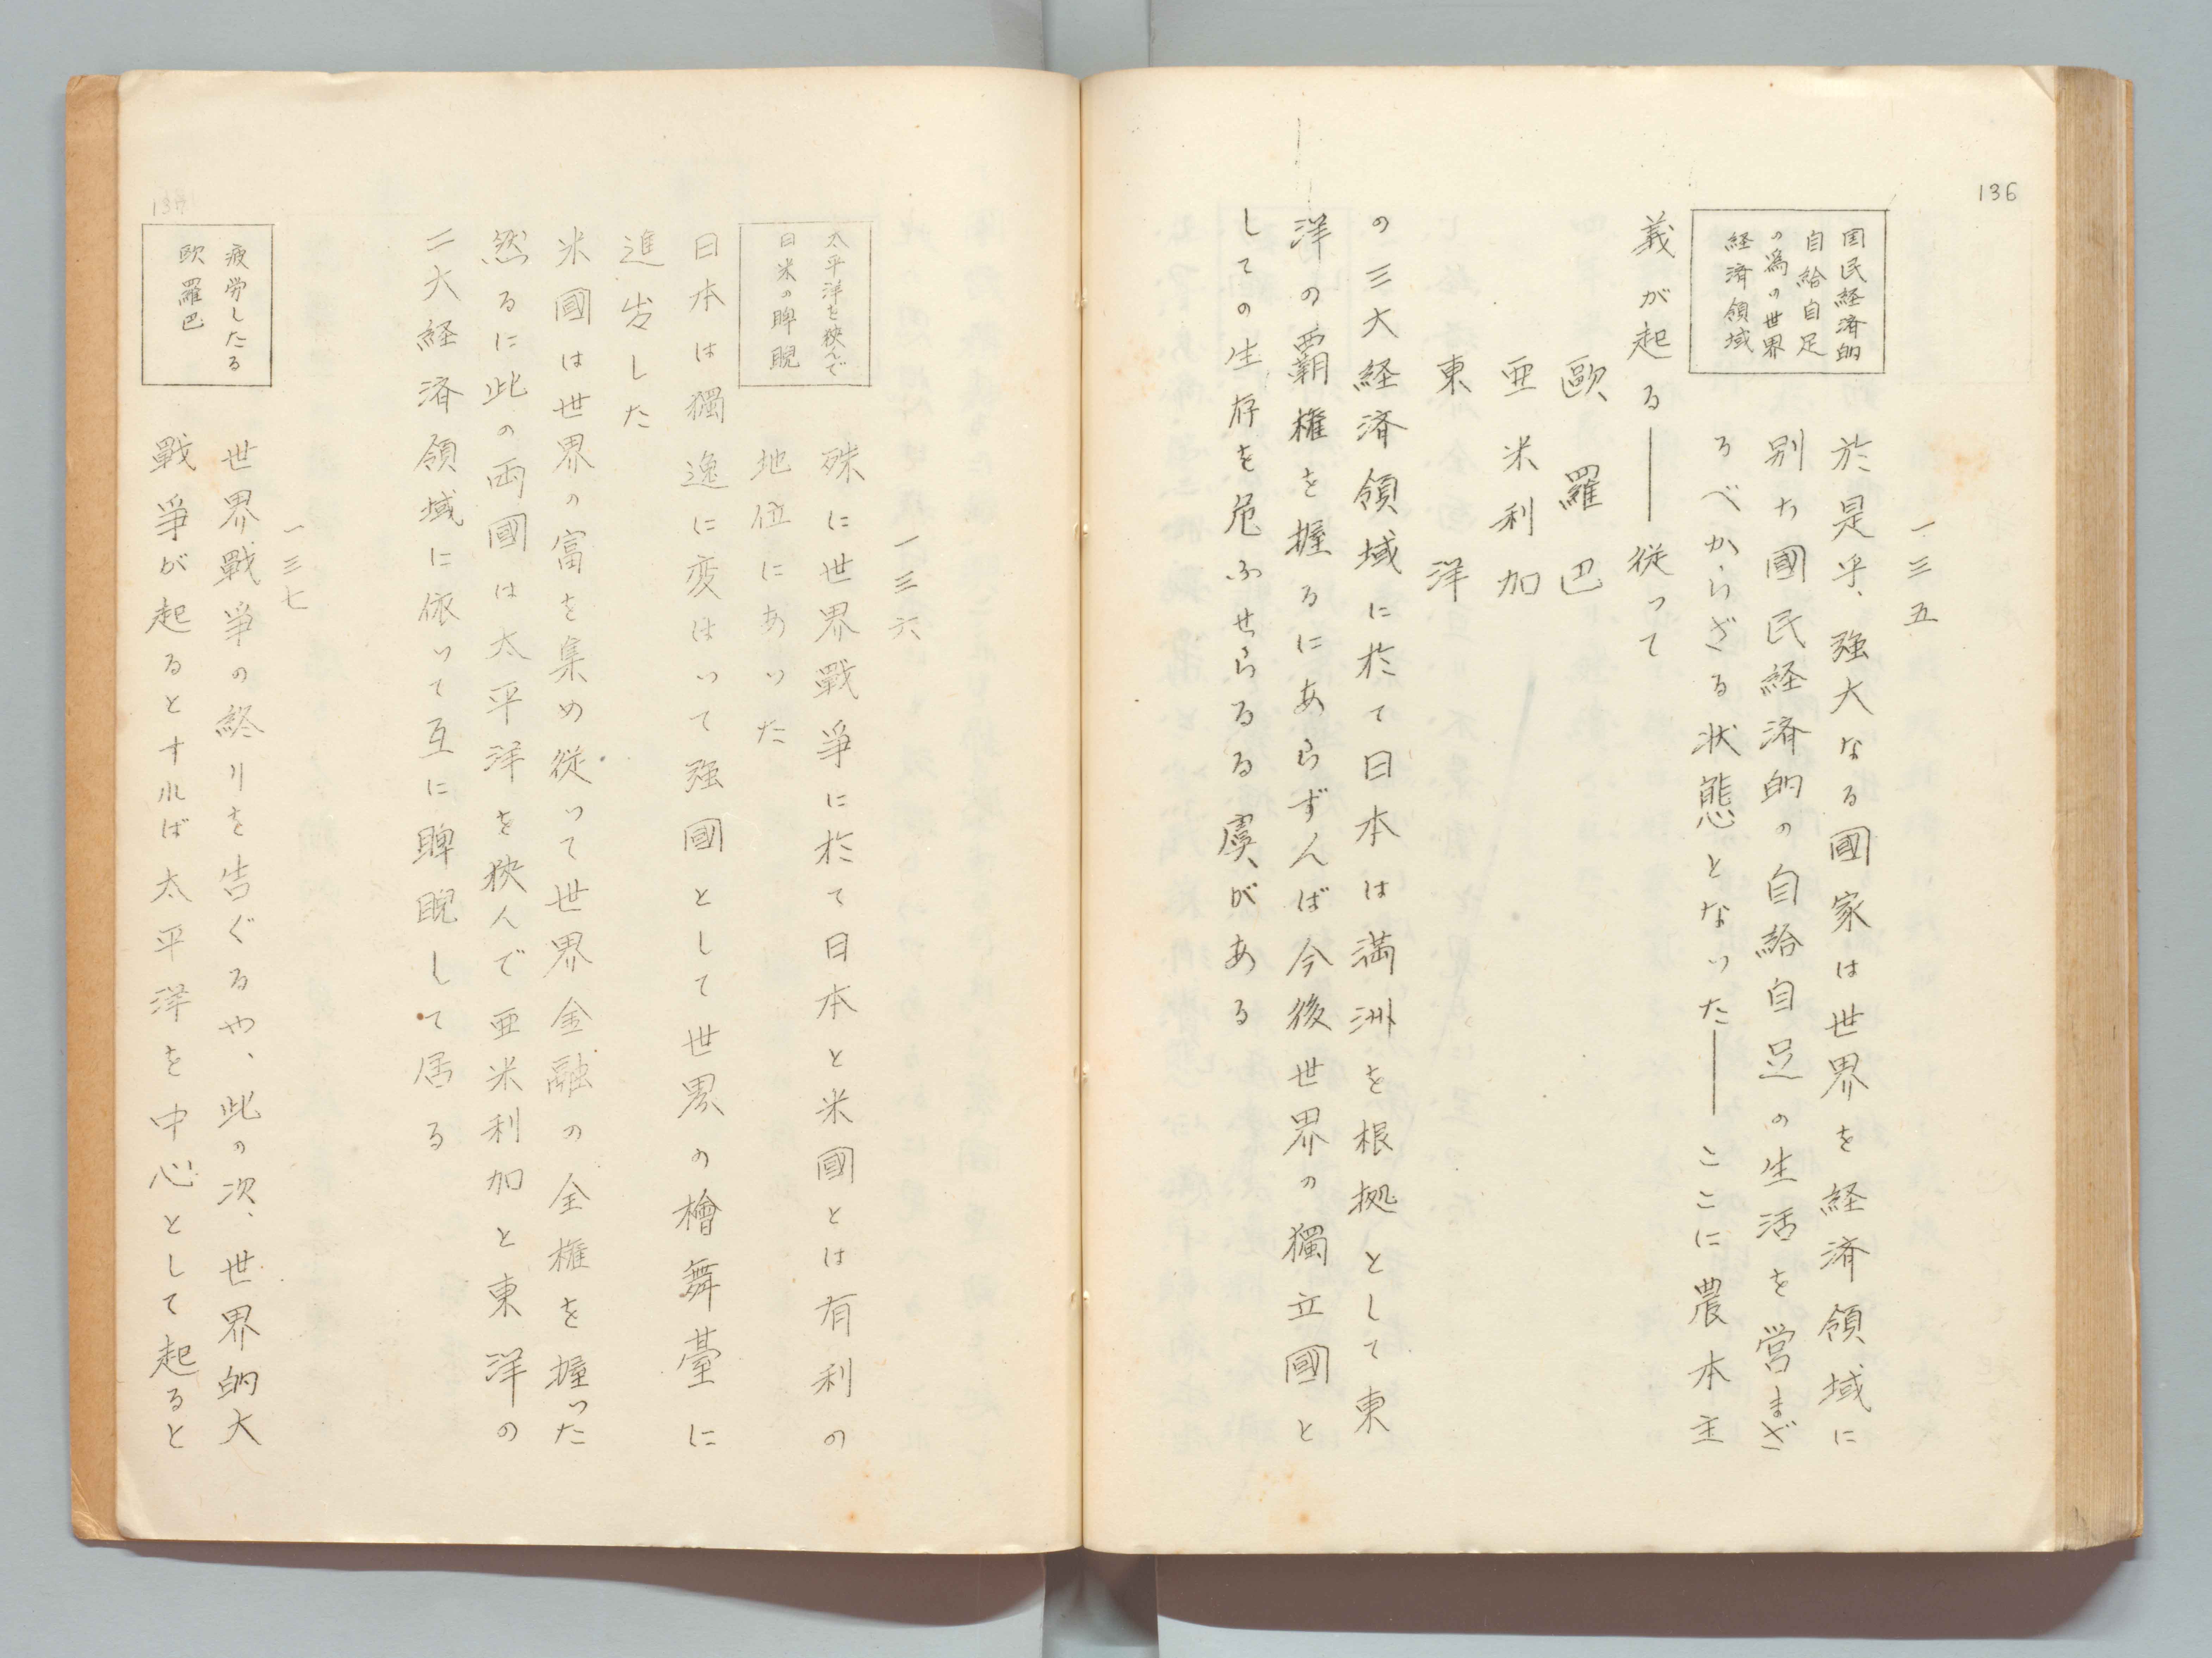 136
一三五
国民経済的
自給自足
の為の世界
経済領域
於是乎、強大なる國家は世界を経済領域に
別ち國民経済的の自給自足の生活を営まざ
るべからざる状態となった――ここに農本主
義が起る――従って
歐羅巴
亜米利加
東洋
の三大経済領域に於て日本は満洲を根拠として東
洋の覇権を握るにあらずんば今後世界の獨立國と
しての生存を危ふせらるる虞がある
一三六
太平洋を狹んで
日米の睥睨
殊に世界戰爭に於て日本と米國とは有利の
地位にあった
日本は獨逸に変はって强國として世界の檜舞臺に
進出した
米國は世界の富を集め従って世界金融の全権を握った
然るに此の両國は太平洋を狹んで亜米利加と東洋の
二大経済領域に依って互に睥睨して居る
一三七
疲労したる
歐羅巴
世界戰爭の終りを告ぐるや、此の次、世界的大
戰爭が起るとすれば太平洋を中心として起ると